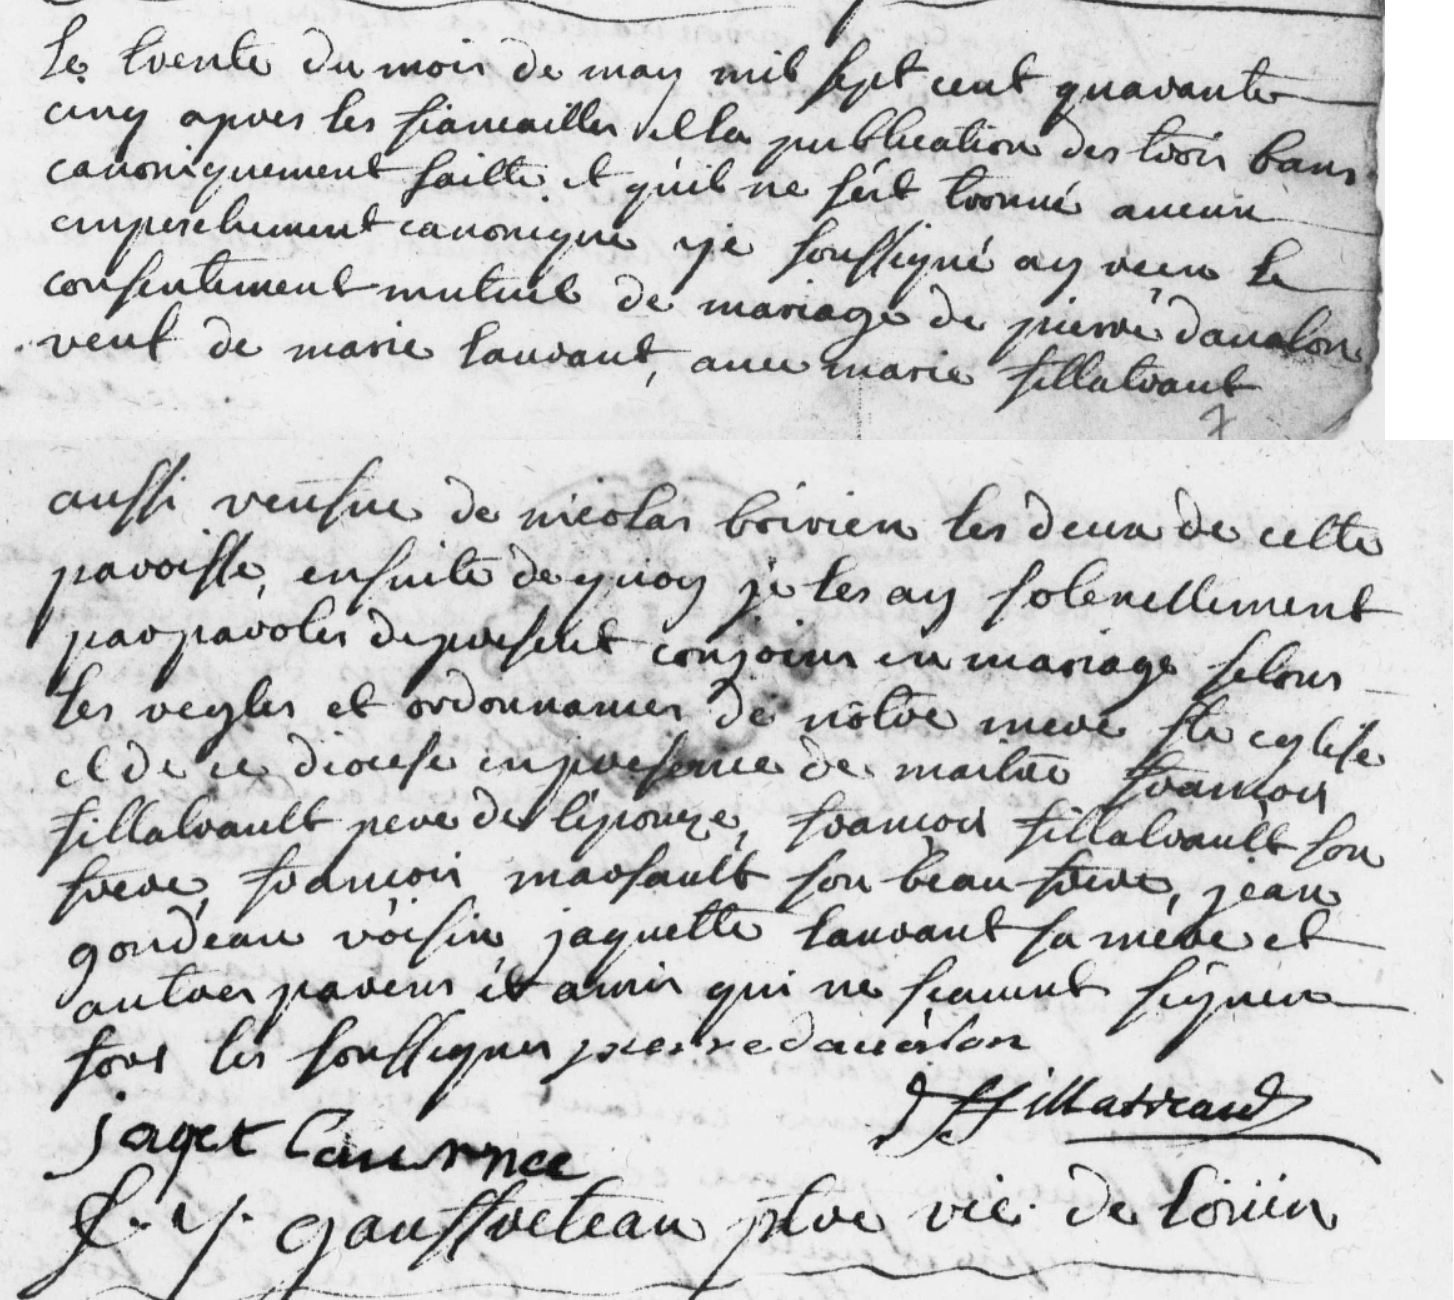 Le trente du mois de may mil sept cent quarante
cinq apres les fiancailles et la publication des trois bans
canoniquement faitte et qu'il ne s'est trouvé aucun
empeschement canonique je soussigné ay receu le
consentement mutuel de mariage de pierre davalon
veuf de marie lauvant, avec marie fillatraut
aussi veufsue de nicolas brivien les deux de cette
paroisse, ensuite de quoy je les ay solenellement
par paroles de present conjoins en mariage selons
les regles et ordonnances de nôtre mere ste eglise
et de ce diocese en presence de maitre francois
fillatrault pere de l'epouze, francois fillatrault son
frere, francois marsault son beau frere, jean
gondeau voisin, jaquette lauvant sa mere et
autres parens et amis qui ne scavent signer
fors les soussignes pierre dauaslon
F fillatreaud
jaqet
gauffreteau ptre vic. de